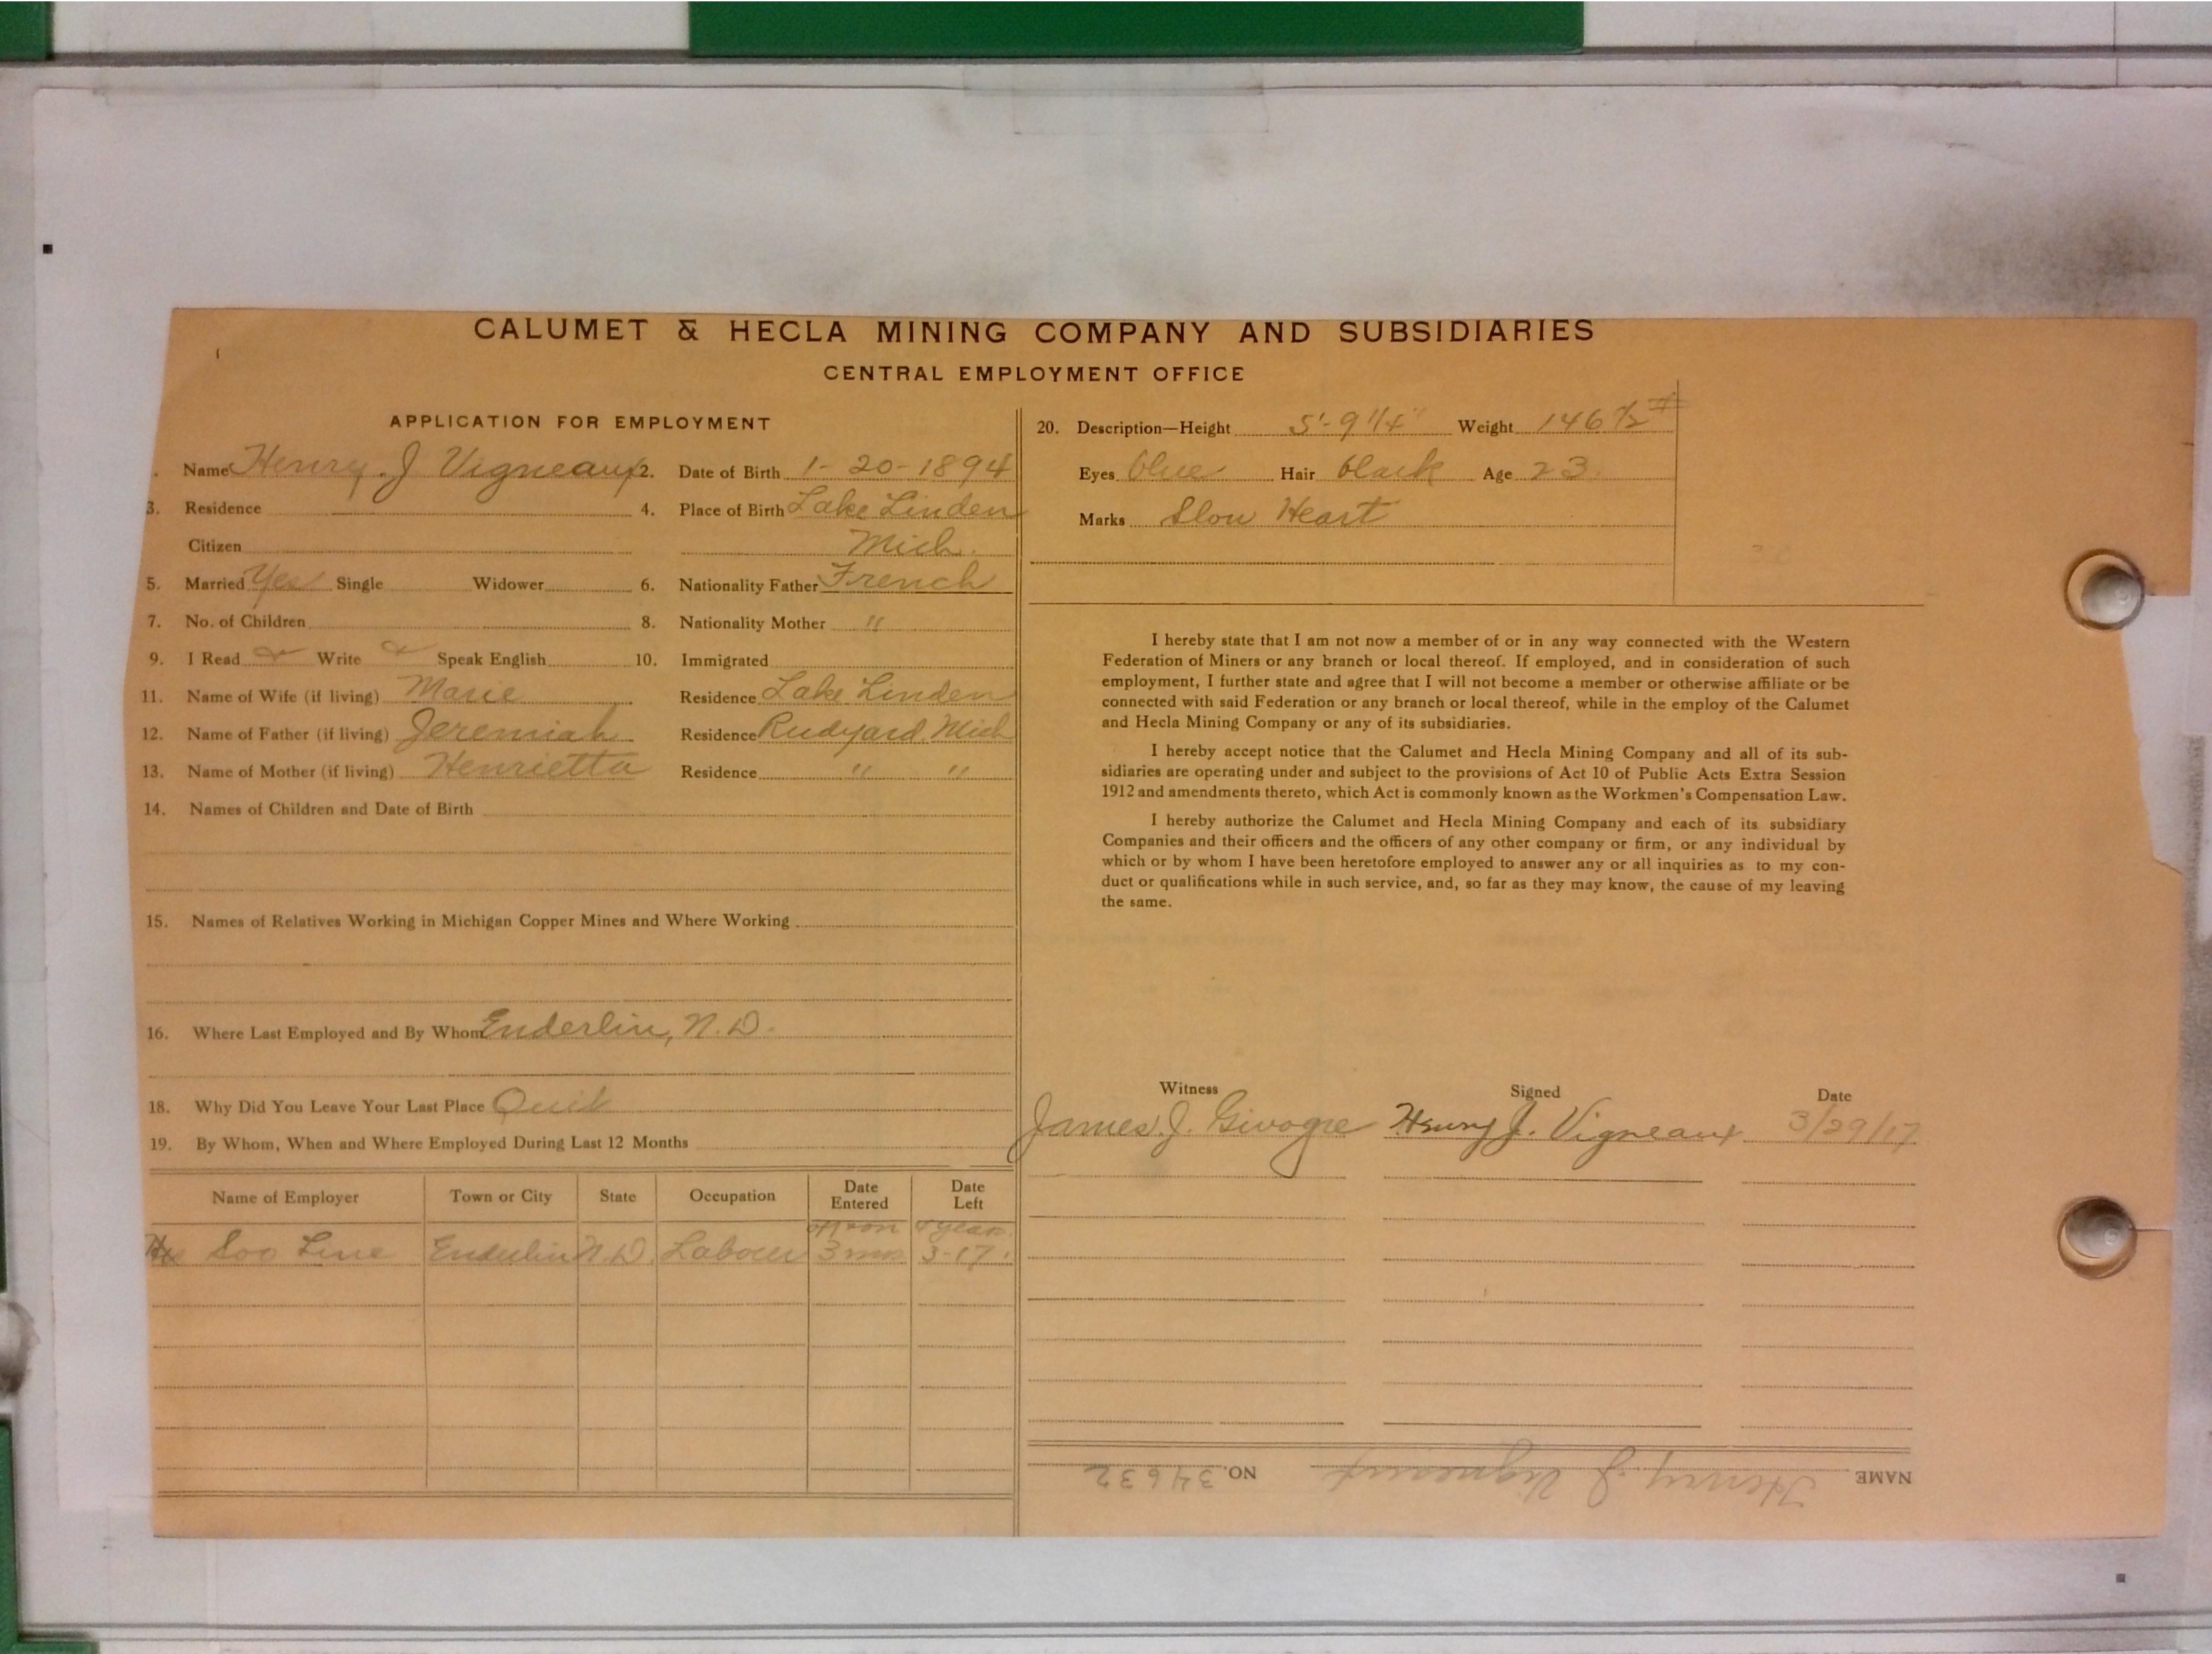 CALUMET & HECLA MINING COMPANY AND SUBSIDIARIES
CENTRAL EMPLOYMENT OFFICE
APPLICATION FOR EMPLOYMENT
Name Henry. J Vigneaux 2. Date of Birth 1-20-1894
3. Residence 4. Place of Birth Lake Linden
Citizen Mich.
5. Married Yes Single Widower 6. Nationality Father French
7. No. of Children 8. Nationality Mother "
9. I Read Write Speak English 10. Immigrated
11. Name of Wife (if living) Marie Residence Lake Linden
12. Name of Father (if living) Jeremiah Residence Rudyard, Mich
13. Name of Mother (if living) Henrietta Residence " "
14. Names of Children and Date of Birth
15. Names of Relatives Working in Michigan Copper Mines and Where Working
16. Where Last Employed and By Whom Enderlin, N.D.
18. Why Did You Leave Your Last Place Quit
19. By Whom, When and Where Employed During Last 12 Months
Name of Employer Town or City State Occupation Date Entered Date Left
off & on 4 years
Soo Line Enderlin N.D. Labour 3 mos 3-17.
20. Description—Height 5'-9 1/4" Weight 146 1/2 #
Eyes blue Hair black Age 23.
Marks Slow Heart
I hereby state that I am not now a member of or in any way connected with the Western
Federation of Miners or any branch or local thereof. If employed, and in consideration of such
employment, I further state and agree that I will not become a member or otherwise affiliate or be
connected with said Federation or any branch or local thereof, while in the employ of the Calumet
and Hecla Mining Company or any of its subsidiaries.
I hereby accept notice that the Calumet and Hecla Mining Company and all of its sub-
sidiaries are operating under and subject to the provisions of Act 10 of Public Acts Extra Session
1912 and amendments thereto, which Act is commonly known as the Workmen's Compensation Law.
I hereby authorize the Calumet and Hecla Mining Company and each of its subsidiary
Companies and their officers and the officers of any other company or firm, or any individual by
which or by whom I have been heretofore employed to answer any or all inquiries as to my con-
duct or qualifications while in such service, and, so far as they may know, the cause of my leaving
the same.
Witness Signed Date
James. J. Givogre Henry J. Vigneaux 3/29/17
NAME Henry. J Vigneaux NO. 34632